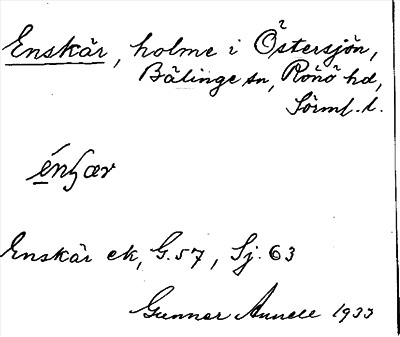 Enskär, holme i Östersjön,
Bälinge sn, Rönö hd,
Sörml. l.
énʃær
Enskär ek, G. 57, Sj. 63
Gunnar Annell 1933